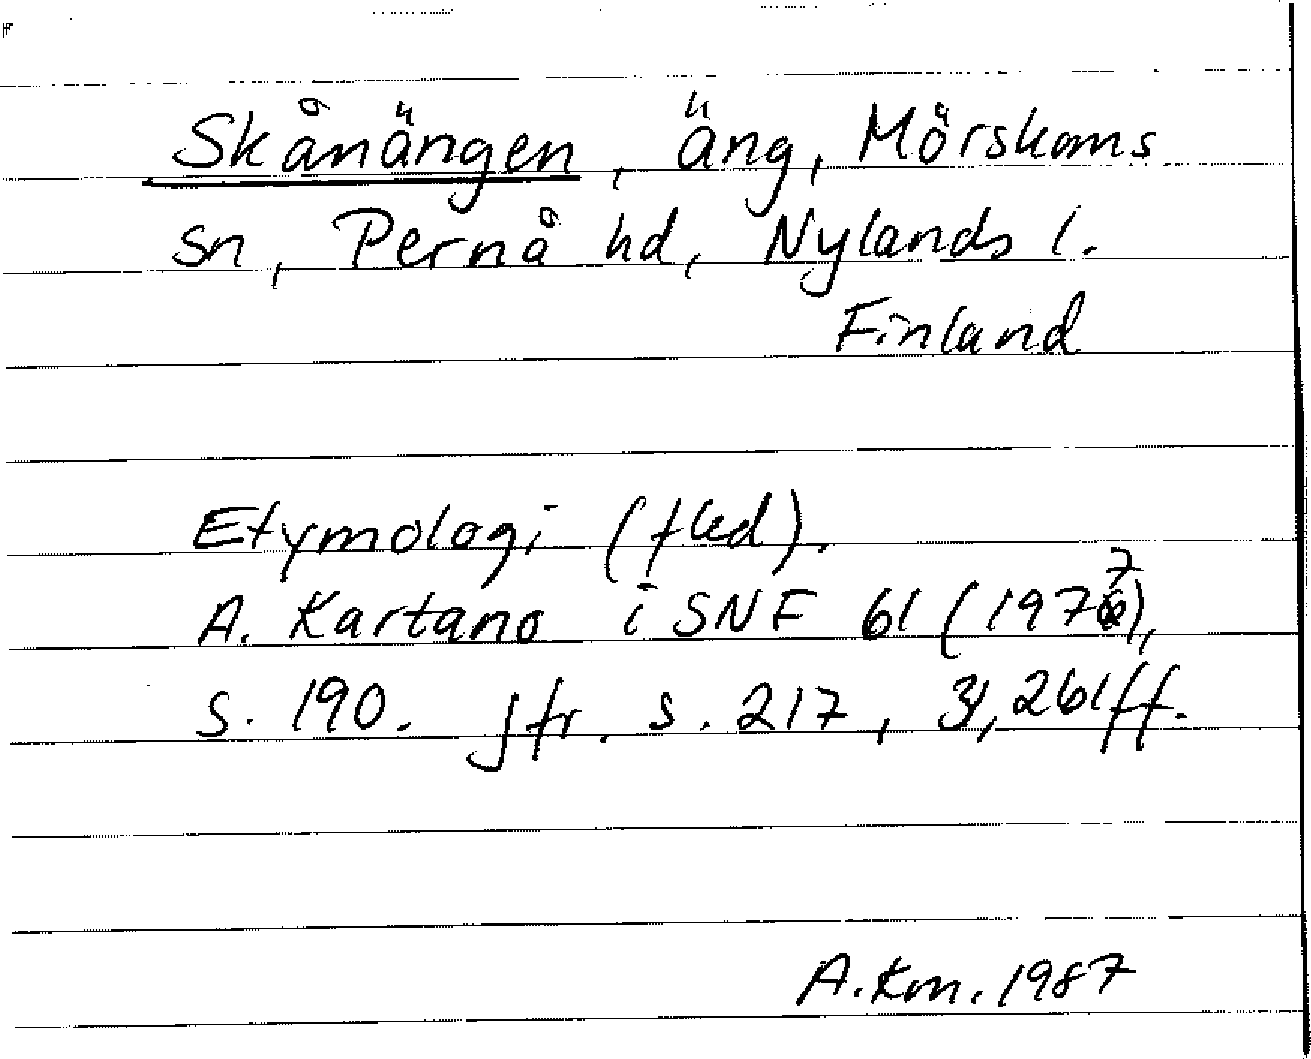 Skånängen, äng, Mörskoms
sn, Pernå hd, Nylands l.
Finland
Etymologi (fled).
A. Kartano i SNF 61 (1977),
s. 190. Jfr. s. 217, 261ff.
A.Km. 1987